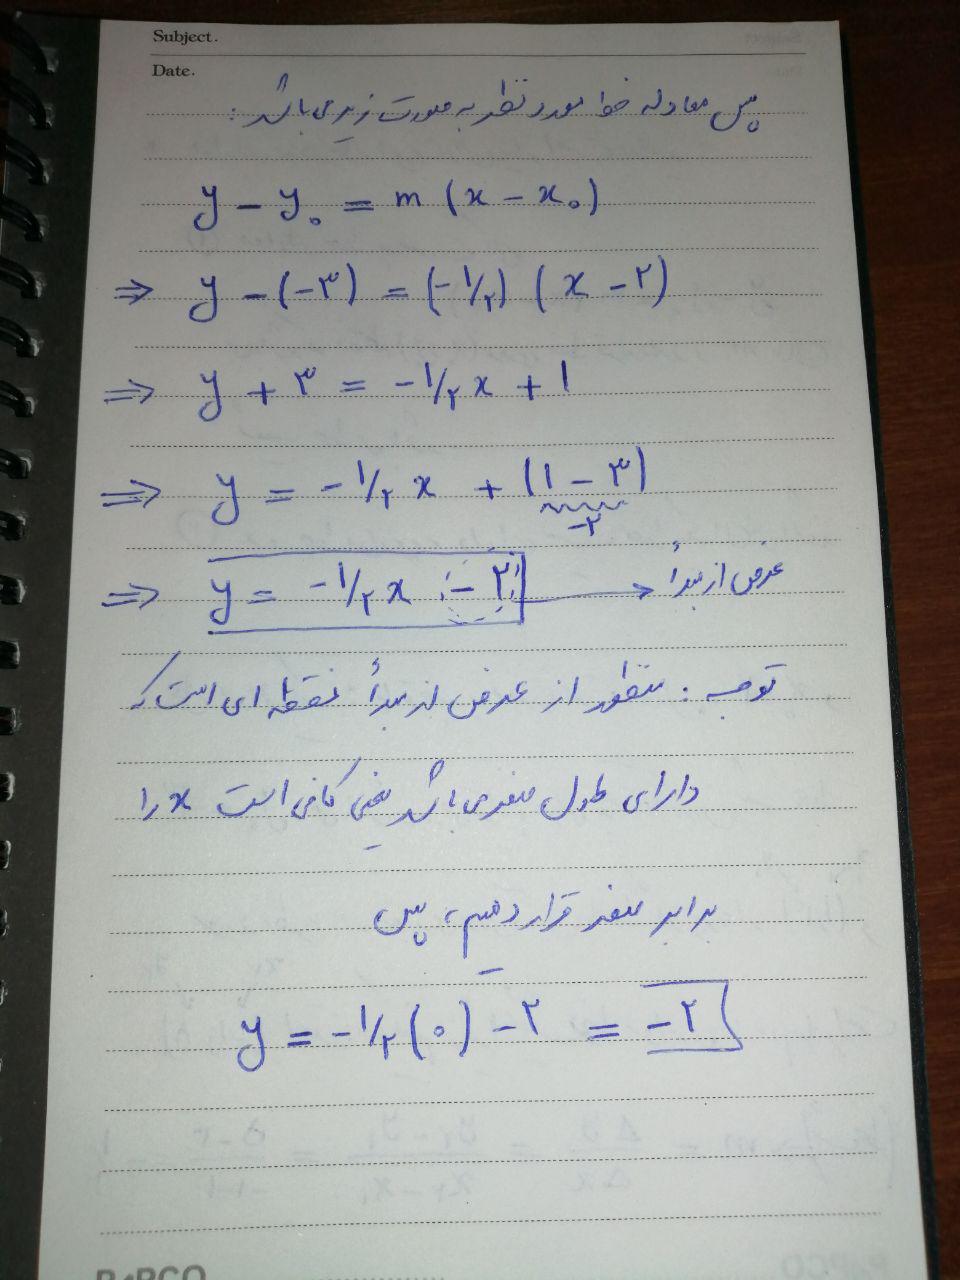 Subject.
Date.
پس معادله خط مورد نظر به صورت زیر می باشد :
y − y₀ = m (x − x₀)
⇒ y − (−۳) = (−۱/۲) (x − ۲)
⇒ y + ۳ = −۱/۲ x + ۱
⇒ y = −۱/۲ x + (۱ − ۳)
−۲
⇒ y = −۱/۲ x − ۲ → عرض از مبدأ
توجه : منظور از عرض از مبدأ نقطه ای است که
دارای طول صفر می باشد یعنی کافی است x را
برابر صفر قرار دهیم، پس
y = −۱/۲ (۰) − ۲ = −۲